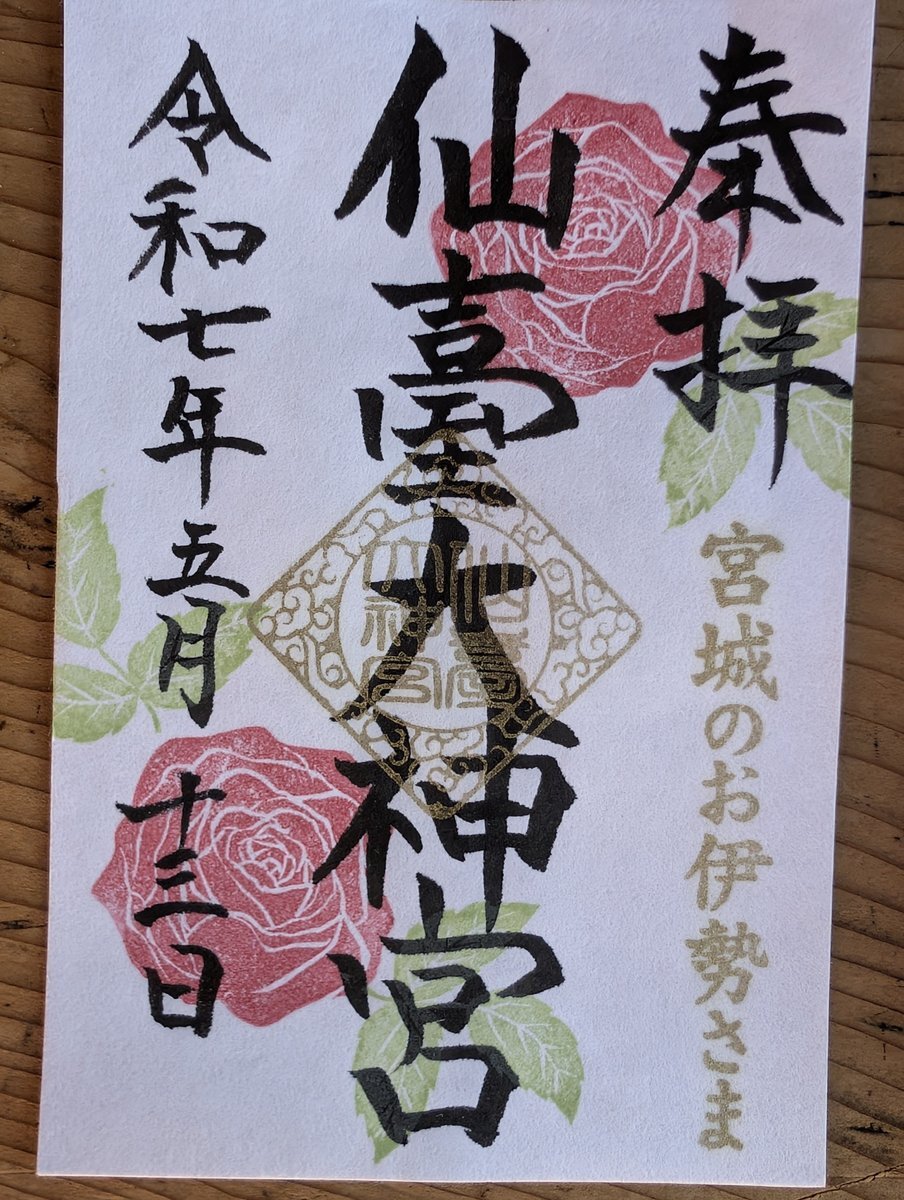 奉拝
宮城のお伊勢さま
仙臺大神宮
仙臺大神宮
令和七年五月十三日